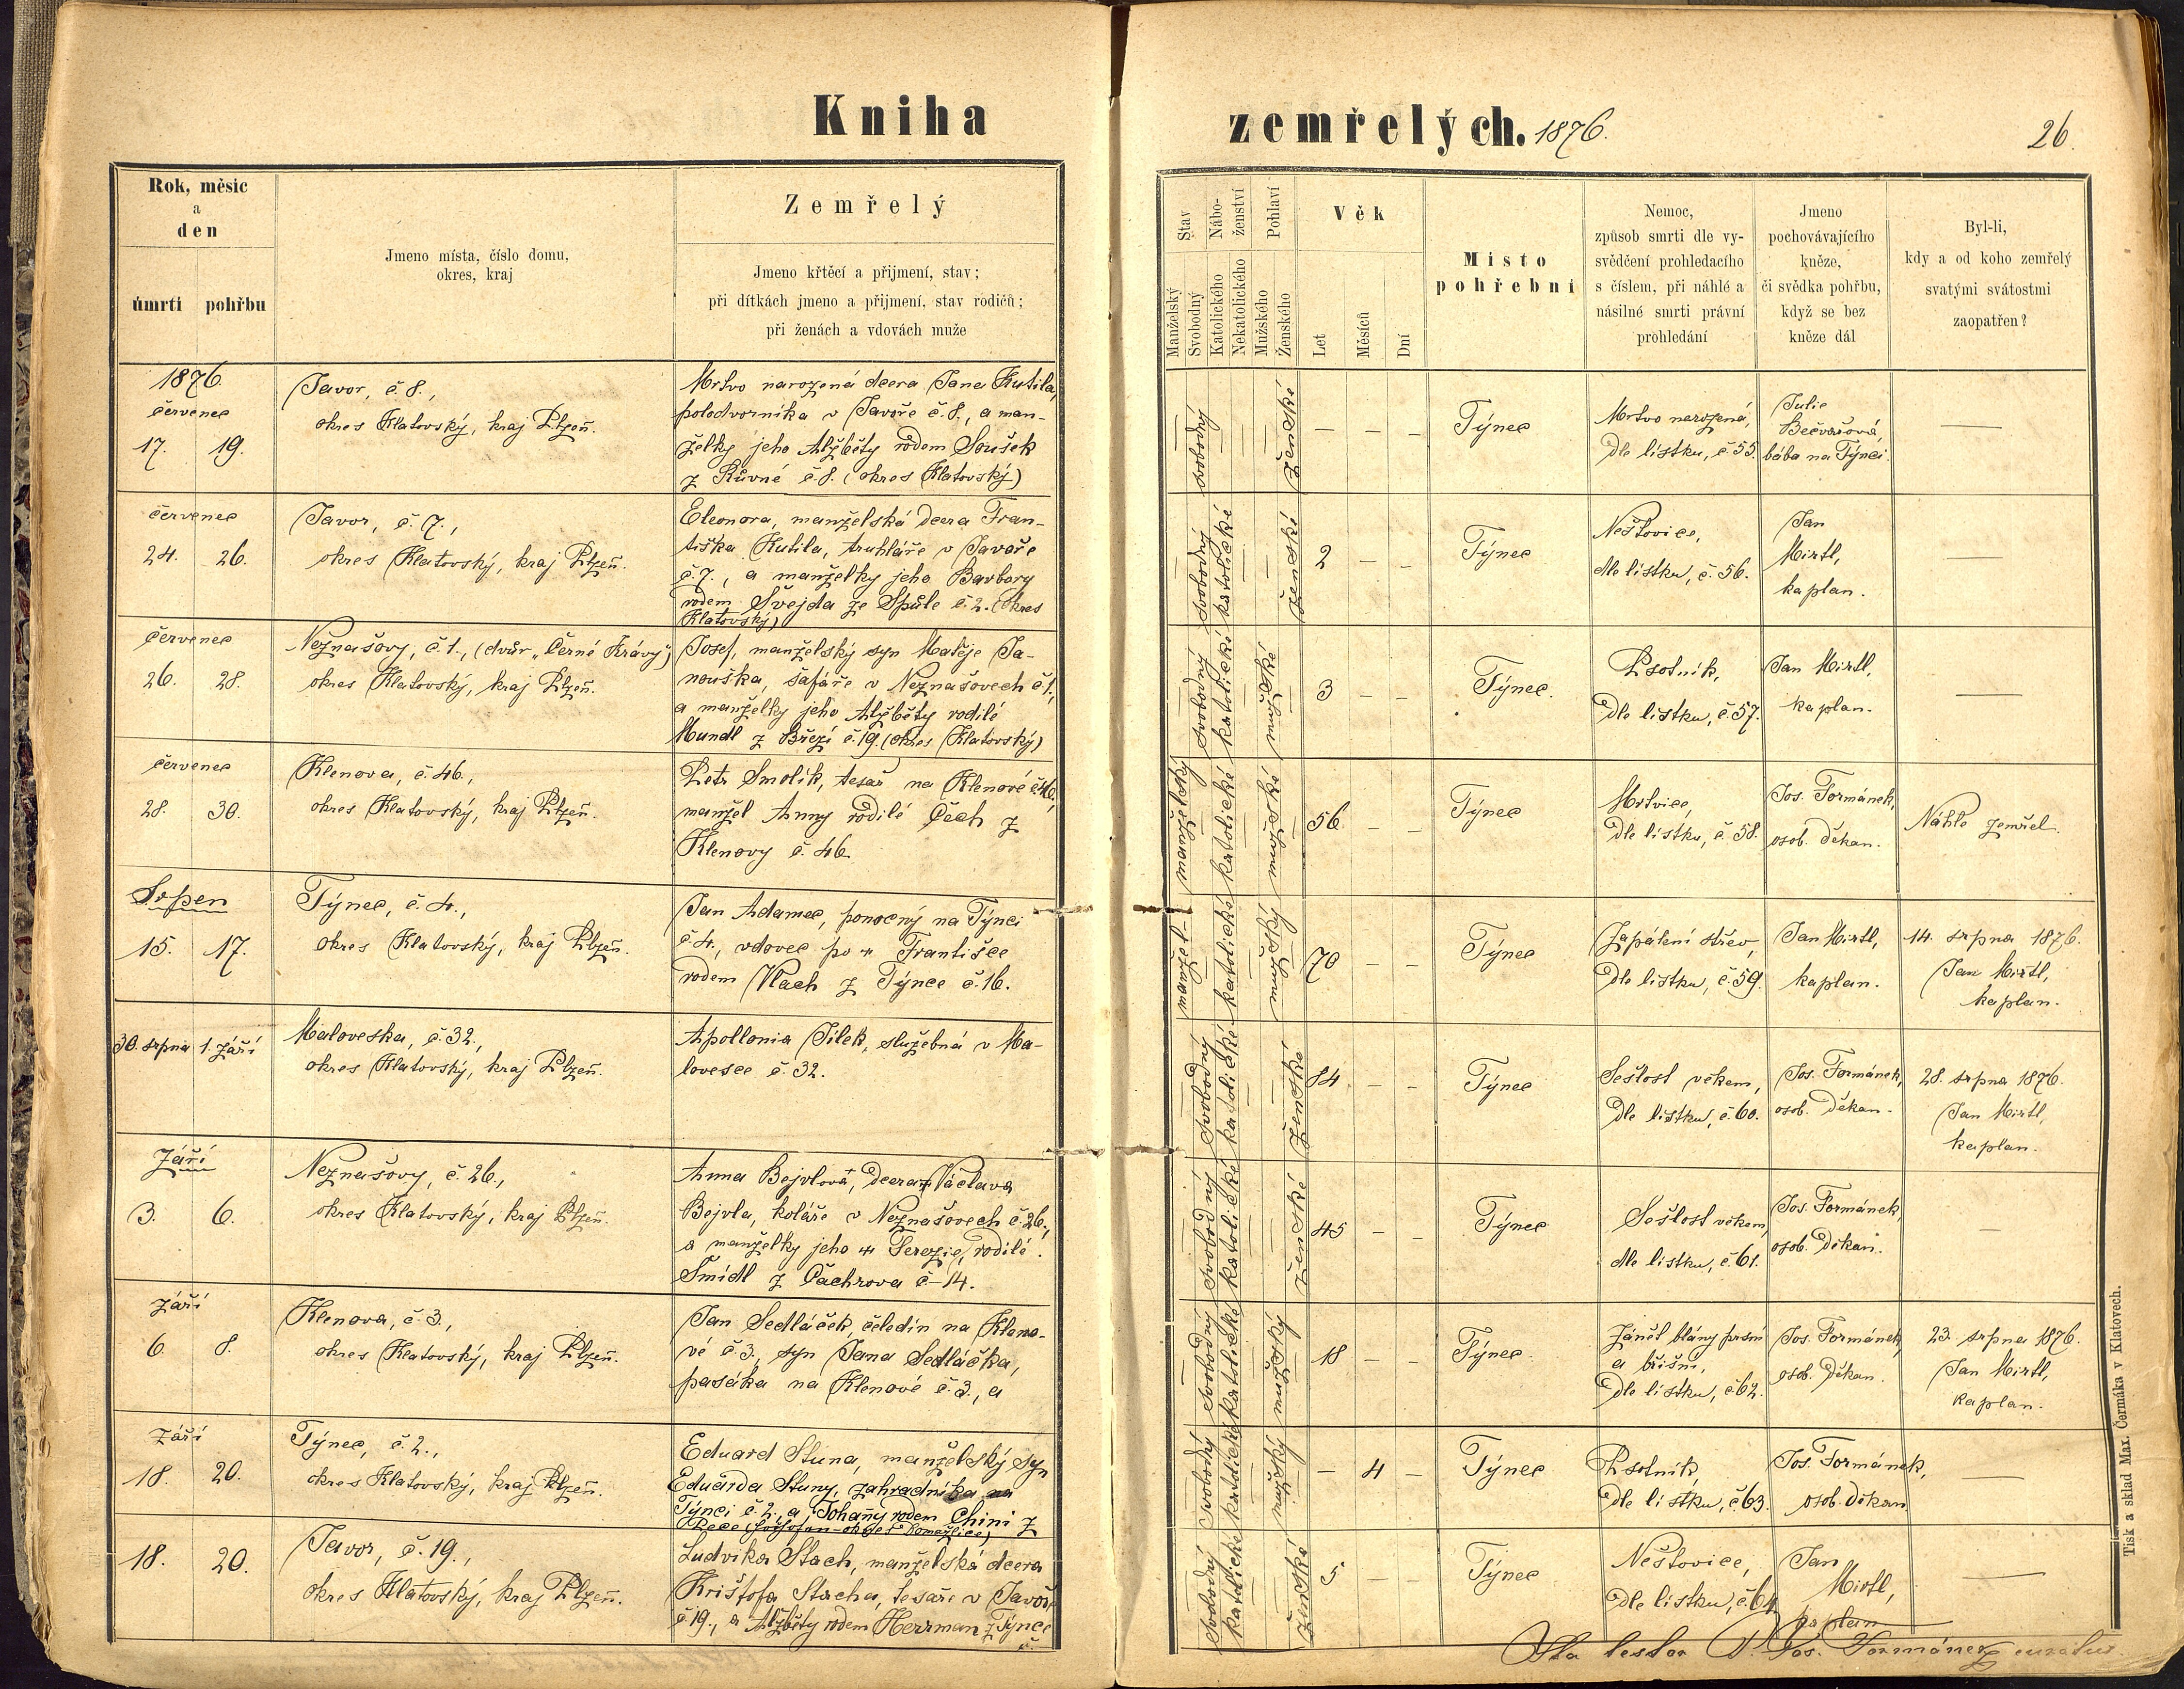 Kniha
zemřelých. 1876.
26.
Rok, měsíc
a
den
úmrtí
pohřbu
Jmeno místa, číslo domu,
okres, kraj
Zemřelý
Jmeno křtěcí a přijmení, stav;
při dítkách jmeno a přijmení, stav rodičů;
při ženách a vdovách muže
Stav
Manželský
Svobodný
Nábo-
ženství
Katolického
Nekatolického
Pohlaví
Mužského
Ženského
Věk
Let
Měsíců
Dní
Místo
pohřební
Nemoc,
způsob smrti dle vy-
svědčení prohledacího
s číslem, při náhlé a
násilné smrti právní
prohledání
Jmeno
pochovávajícího
kněze,
či svědka pohřbu,
když se bez
kněze dál
Byl-li,
kdy a od koho zemřelý
svatými svátostmi
zaopatřen?
1876.
červenec
17. 19.
Javor, č. 8.,
okres Klatovský, kraj Plzeň.
Mrtvo narozená dcera Jana Kutila,
polodvorníka v Javoře č. 8., a man-
želky jeho Alžběty rodem Soušek
z Růvné č. 8. (okres Klatovský)
svobodný
ženské
— — —
Týnec
Mrtvo narozená,
Dle lístku, č. 55.
Julie
Bečvařová,
bába na Týnci.
—
červenec
24. 26.
Javor, č. 7.,
okres Klatovský, kraj Plzeň.
Eleonora, manželská dcera Fran-
tiška Kutila, truhláře v Javoře
č. 7., a manželky jeho Barbory
rodem Švejda ze Spůle č. 2. (okres
Klatovský)
svobodný
katolické
ženské
2 — —
Týnec
Neštovice,
dle lístku, č. 56.
Jan
Mirtl,
kaplan.
—
červenec
26. 28.
Neznašovy, č. 1., (dvůr „Černé Krávy")
okres Klatovský, kraj Plzeň.
Josef, manželský syn Matěje Ja-
nouška, šafáře v Neznašovech č. 1.,
a manželky jeho Alžběty rodilé
Mundl z Březí č. 19. (okres Klatovský)
svobodný
katolické
mužské
3 — —
Týnec.
Psotník,
Dle lístku, č. 57.
Jan Mirtl,
kaplan.
—
červenec
28. 30.
Klenova, č. 46.,
okres Klatovský, kraj Plzeň.
Petr Smolík, tesař na Klenové č. 46,
manžel Anny rodilé Čech z
Klenovy č. 46.
manželský
katolické
mužské
56 — —
Týnec
Mrtvice,
Dle lístku, č. 58.
Jos. Formánek,
osob. děkan.
Náhle zemřel.
Srpen
15. 17.
Týnec, č. 4.,
okres Klatovský, kraj Plzeň.
Jan Adamec, ponocný na Týnci
č. 4., vdovec po † Františce
rodem Vlach z Týnce č. 16.
manžel.
katolické
mužský
70 — —
Týnec
Zapálení střev,
Dle lístku, č. 59.
Jan Mirtl,
kaplan.
14. srpna 1876.
Jan Mirtl,
kaplan.
30. srpna 1. září
Maloveska, č. 32.,
okres Klatovský, kraj Plzeň.
Apollonia Jílek, služebná v Ma-
lovesce č. 32.
svobodný
katolické
ženské
84 — —
Týnec
Sešlost věkem,
Dle lístku, č. 60.
Jos. Formánek,
osob. děkan.
28. srpna 1876.
Jan Mirtl,
kaplan.
Září
3. 6.
Neznašovy, č. 26.,
okres Klatovský, kraj Plzeň.
Anna Bejvlová, dcera † Václava
Bejvla, koláře v Neznašovech č. 26.,
a manželky jeho † Terezie, rodilé
Šmídl z Čachrova č. 14.
svobodný
katolické
ženské
45 — —
Týnec
Sešlost věkem,
dle lístku, č. 61.
Jos. Formánek,
osob. děkan.
—
září
6. 8.
Klenova, č. 3.,
okres Klatovský, kraj Plzeň.
Jan Sedláček, čeledín na Kleno-
vé č. 3., syn Jana Sedláčka,
pasáka na Klenové č. 3., a
svobodný
katolické
mužský
18 — —
Týnec
Zánět blány prsní
a břišní,
Dle lístku, č. 62.
Jos. Formánek,
osob. děkan.
23. srpna 1876.
Jan Mirtl,
kaplan.
září
18. 20.
Týnec, č. 2.,
okres Klatovský, kraj Plzeň.
Eduard Stuna, manželský syn
Eduarda Stuny, zahradníka na
Týnci č. 2., a Johany rodem Chini z
svobodný
katolické
mužský
— 4 —
Týnec
Psotník,
Dle lístku, č. 63.
Jos. Formánek,
osob. děkan
—
18. 20.
Javor, č. 19.,
okres Klatovský, kraj Plzeň.
Ludvika Stach, manželská dcera
Krištofa Stacha, tesaře v Javoře
č. 19., a Alžběty rodem Herrman z Týnce
č.
svobodný
katolické
ženské
5 — —
Týnec
Neštovice,
Dle lístku, č. 64
Jan
Mirtl,
kaplan
—
Ita testor P. Jos. Formánek curatus.
Tisk a sklad Max. Čermáka v Klatovech.